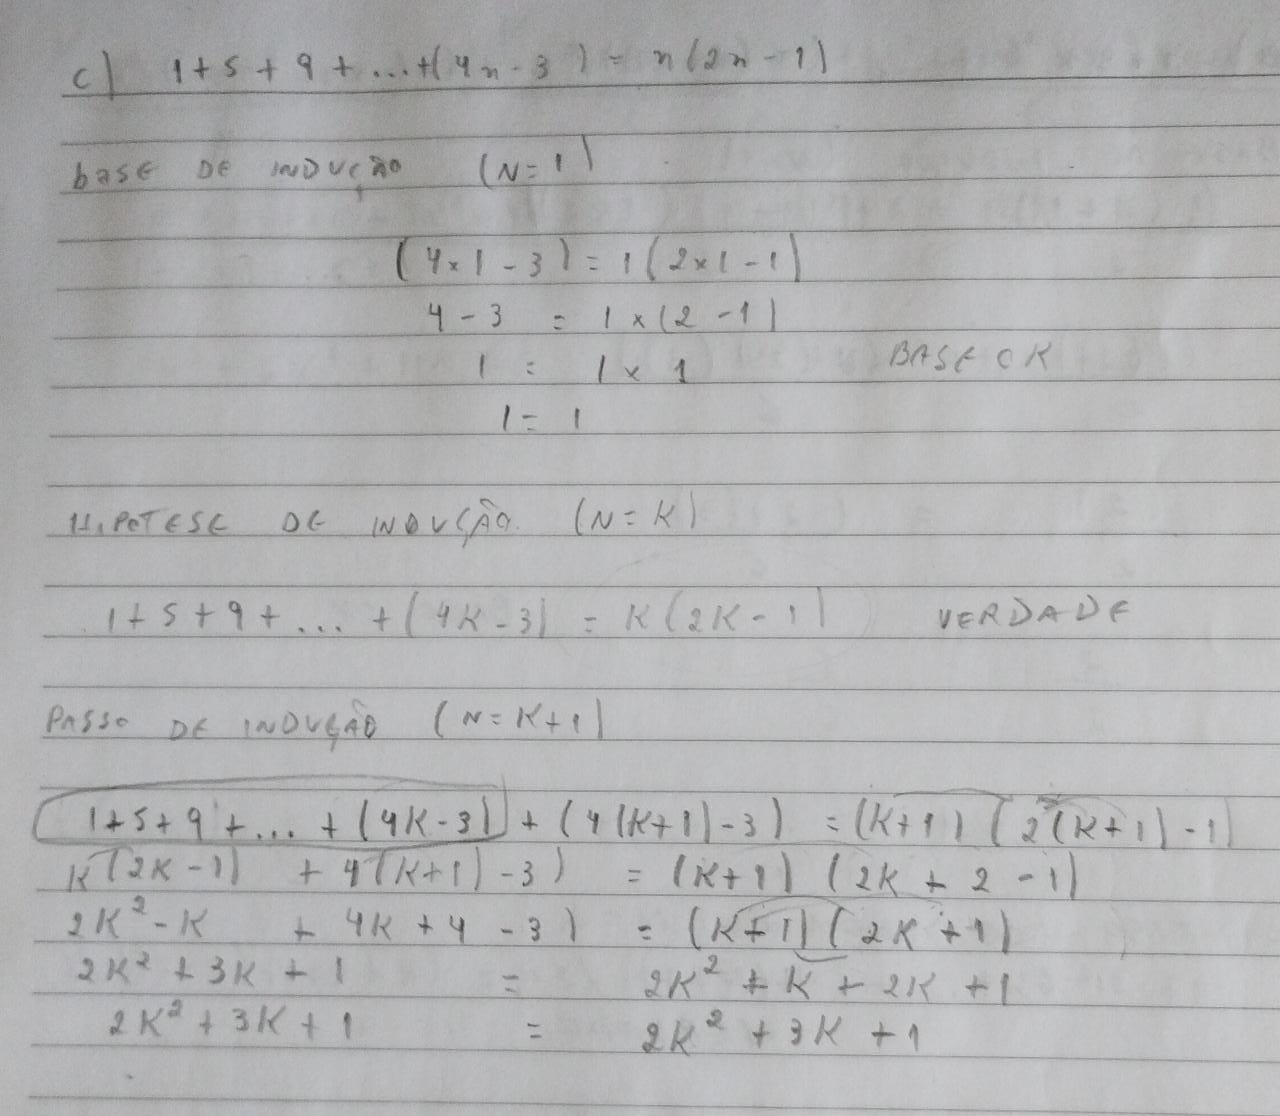 c) 1+5+9+...+(4n-3) = n(2n-1)
base DE INDUÇÃO (N=1)
(4×1-3) = 1(2×1-1)
4-3 = 1×(2-1)
1 = 1×1 BASE OK
1 = 1
HIPOTESE DE INDUÇÃO. (N=K)
1+5+9+...+(4K-3) = K(2K-1) VERDADE
PASSO DE INDUÇÃO (N=K+1)
1+5+9+...+(4K-3)+(4(K+1)-3) = (K+1)(2(K+1)-1)
K(2K-1) + 4(K+1)-3) = (K+1)(2K+2-1)
2K²-K + 4K+4-3) = (K+1)(2K+1)
2K²+3K+1 = 2K²+K+2K+1
2K²+3K+1 = 2K²+3K+1